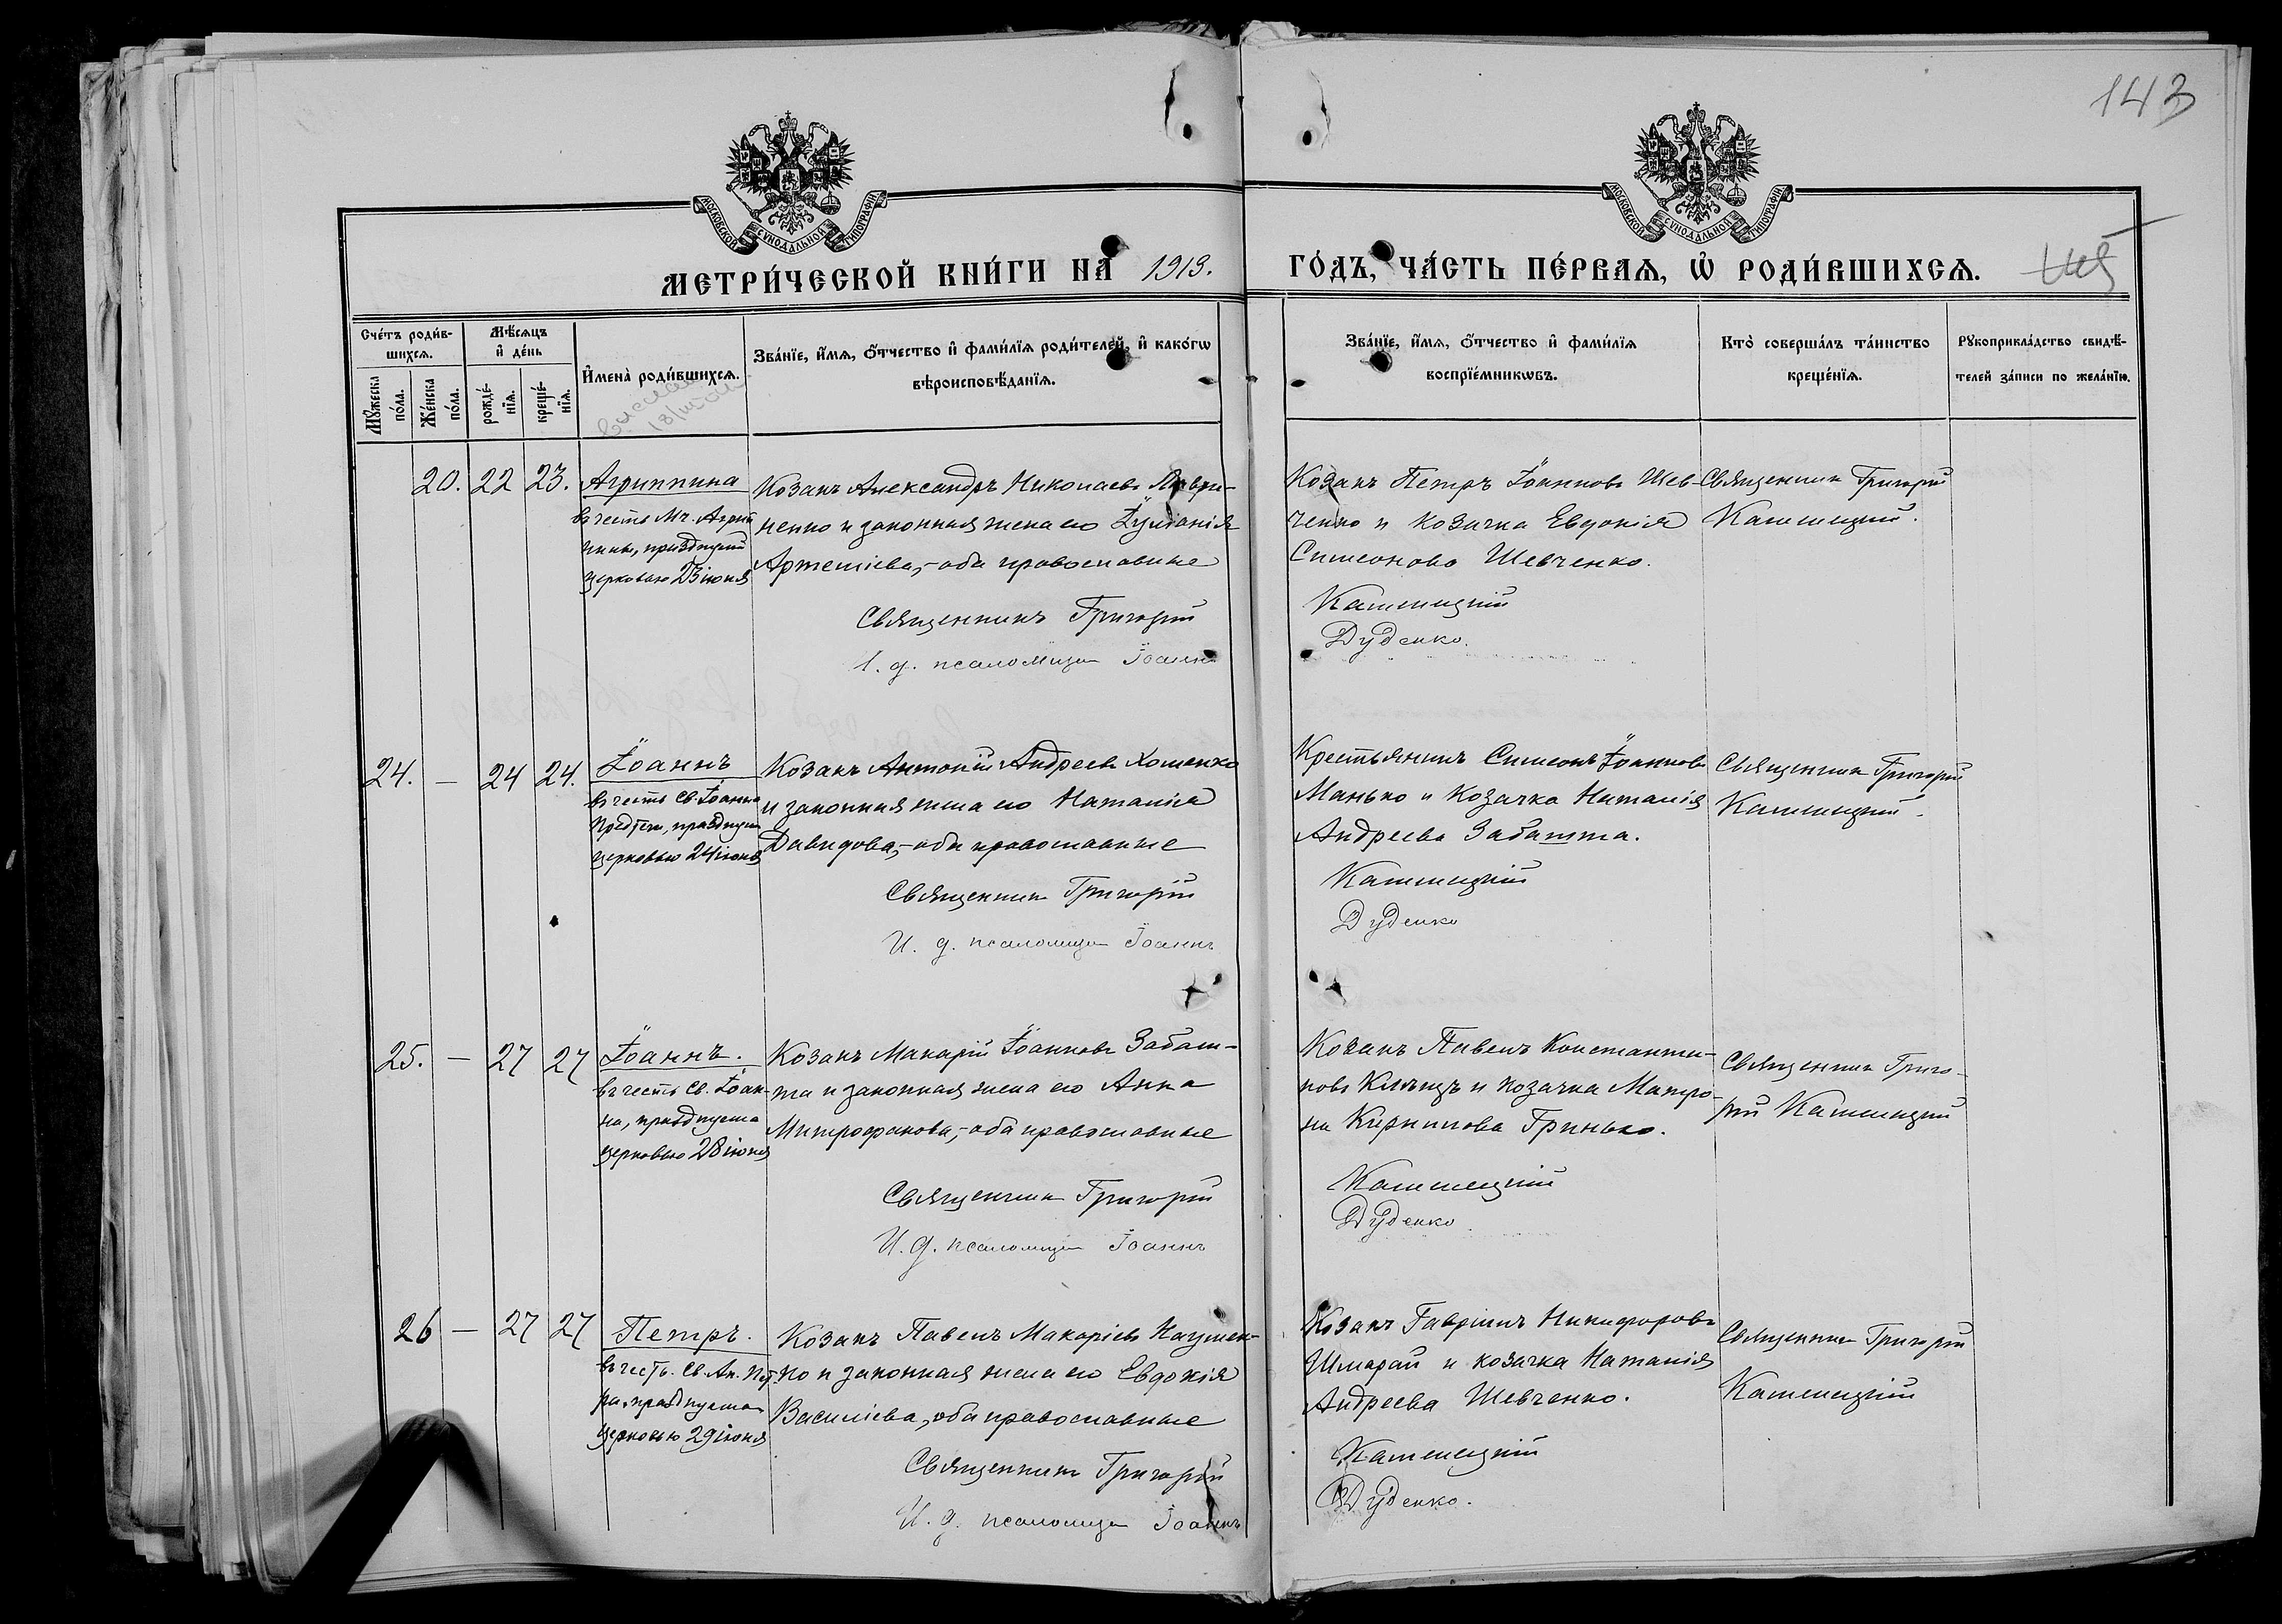 143
МОСКОВСКОЙ СѴНОДАЛЬНОЙ ТИПОГРАФІИ
МОСКОВСКОЙ СѴНОДАЛЬНОЙ ТИПОГРАФІИ
МЕТРИ́ЧЕСКОЙ КНИ́ГИ НА 1913. ГО́ДЪ, ЧА́СТЬ ПЕ́РВАЯ, Ѡ҆ РОДИ́ВШИХСЯ.
Сче́тъ роди́в-
шихся.
Мꙋ́жеска по́ла.
Же́нска по́ла.
Мѣ́сяцъ
и҆ де́нь
рожде́-
нїя.
креще́-
нїя.
И҆мена̀ роди́вшихся.
Зва́нїе, и҆́мя, ѻ҆́тчество и҆ фами́лїя роди́телей, и҆ како́гѡ
вѣроисповѣ́данїя.
Зва́нїе, и҆́мя, ѻ҆́тчество и҆ фами́лїя
воспрїе́мникѡвъ.
Кто̀ соверша́лъ та́инство
креще́нїя.
Рꙋкоприкла́дство свидѣ́-
телей за́писи по жела́нїю.
20. 22 23. Агриппина
въ честь Мч. Агрип
пины, празднуем
церковью 23 іюня
Козакъ Александръ Николаевъ Лаври-
ненко и законная жена его Іуліанія
Артеміева,-оба православные
Священникъ Григорій
И. д. псаломщи Іоаннъ
Козакъ Петръ Іоанновъ Шев-
ченко и козачка Евдокія
Симеонова Шевченко.
Кашицкій
Дуденко.
Священник Григорій
Кашицкій.
24. — 24 24. Іоаннъ
въ честь Св. Іоанна
Предтечи, празднуем
церковью 24 іюня
Козакъ Антоній Андреевъ Хоменко
и законная жена его Наталія
Давидова,-оба православные
Священник Григорій
И. д. псаломщи Іоаннъ
Крестьянинъ Симеонъ Іоанновъ
Манько и козачка Наталія
Андреева Забашта.
Кашицкій
Дуденко
Священник Григорій
Кашицкій.
25. — 27 27 Іоаннъ.
въ честь Св. Іоан-
на, празднуема
церковью 28 іюня
Козакъ Макарій Іоанновъ Забаш-
та и законная жена его Анна
Митрофанова,-оба православные
Священник Григорій
И. д. псаломщи Іоаннъ
Козакъ Павелъ Константи-
новъ и козачка Матро-
на Кириллова Гринько.
Кашицкій
Дуденко
Священник Григо-
рій Кашицкій
26 — 27 27 Петръ.
въ честь. Св. Ап. Пет-
ра, празднуема
церковью 29 іюня
Козакъ Павелъ Макаріевъ Наумен-
ко и законная жена его Евдокія
Василіева, оба православные
Священник Григорій
И. д. псаломщи Іоаннъ
Козакъ Гавріилъ Никифоровъ
Шмарай и козачка Наталія
Андреева Шевченко.
Кашицкій
Дуденко.
Священник Григорій
Кашицкій